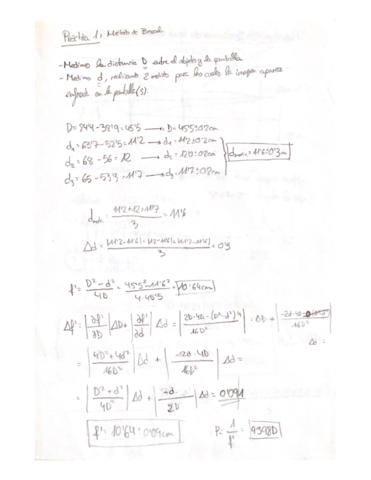 Práctica 1: Método de Bessel
- Medimos la distancia D entre el objeto y la pantalla
- Medimos d, realizando 2 medidas para las cuales la imagen aparece
enfocada en la pantalla (s).
D = 84'4 - 38'9 = 45'5 → D = 45'5 ± 0'2 cm
d₁ = 63'7 - 52'5 = 11'2 → d₁ = 11'2 ± 0'2 cm
d₂ = 68 - 56 = 12 → d₂ = 12'0 ± 0'2 cm
d₃ = 65 - 53'3 = 11'7 → d₃ = 11'7 ± 0'2 cm
d = 11'6 ± 0'3 cm
d = (11'2 + 12 + 11'7) / 3 = 11'6
Δd = (|11'2 - 11'6| + |12 - 11'6| + |11'7 - 11'6|) / 3 = 0'3
f' = (D² - d²) / 4D = (45'5² - 11'6²) / (4 · 45'5) = 10'64 cm
Δf' = |∂f'/∂D| ΔD + |∂f'/∂d| Δd = |(2D · 4D - (D² - d²) 4) / 16D²| · ΔD + |(-2d · 4D) / 16D²|
Δd =
= |(4D² + 4d²) / 16D²| Δd + |(-2d · 4D) / 16D²| Δd =
= |(D² + d²) / 4D²| Δd + |-d / 2D| Δd = 0'091
f' = 10'64 ± 0'09 cm
P = 1 / f' =